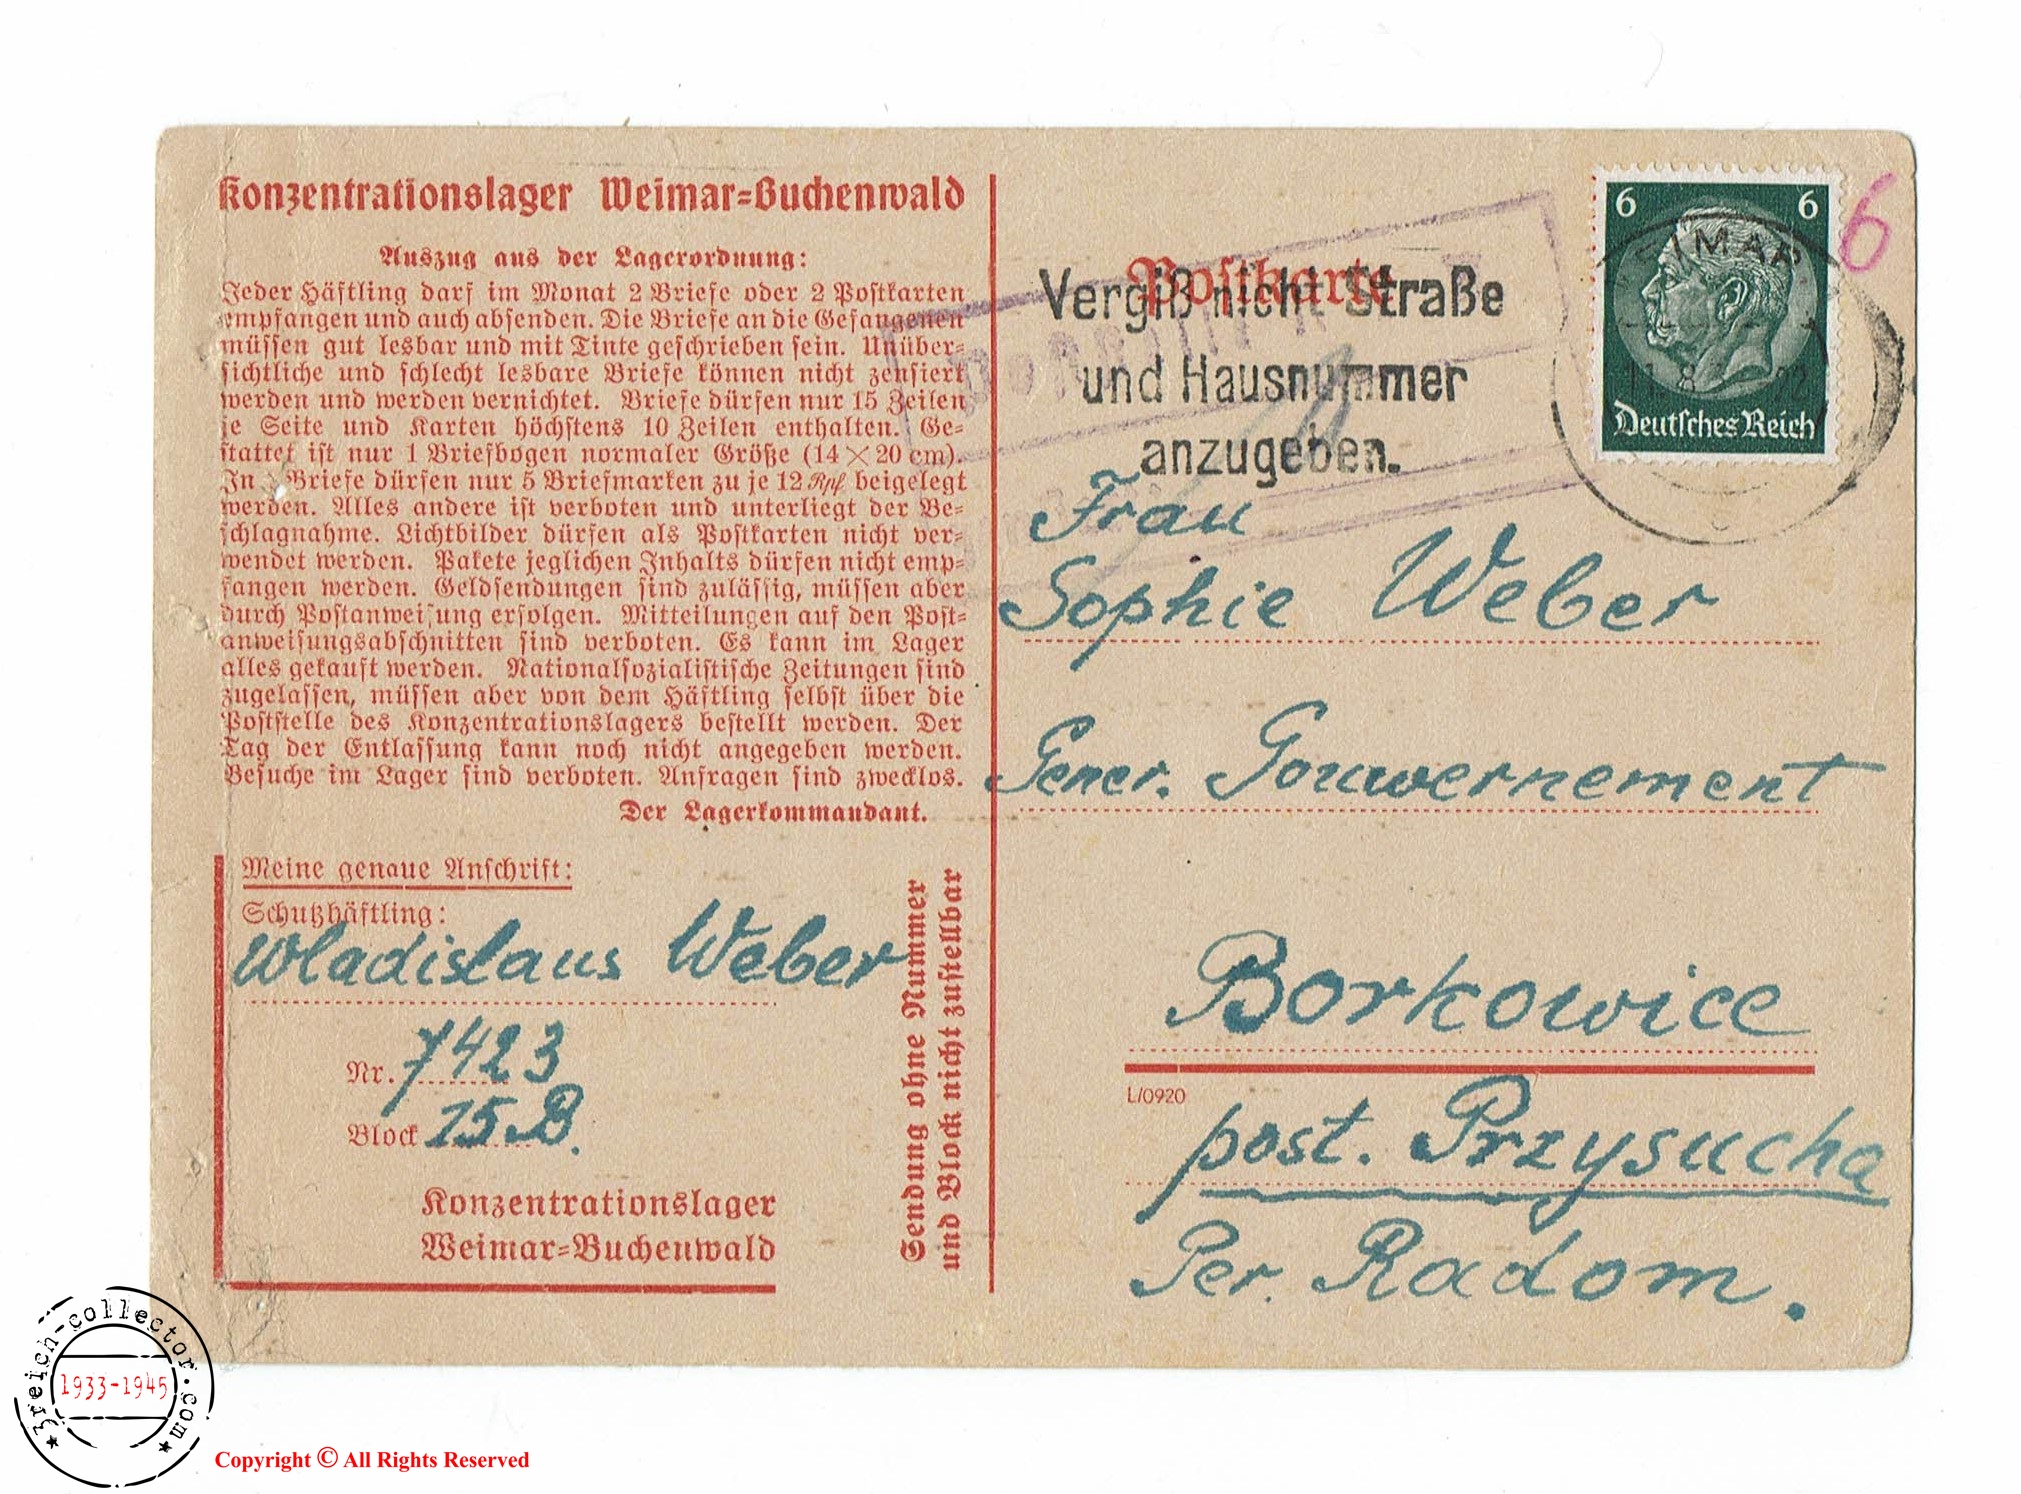 Konzentrationslager Weimar=Buchenwald
Auszug aus der Lagerordnung:
Jeder Häftling darf im Monat 2 Briefe oder 2 Postkarten
empfangen und auch absenden. Die Briefe an die Gefangenen
müssen gut lesbar und mit Tinte geschrieben sein. Unüber=
sichtliche und schlecht lesbare Briefe können nicht zensiert
werden und werden vernichtet. Briefe dürfen nur 15 Zeilen
je Seite und Karten höchstens 10 Zeilen enthalten. Ge=
stattet ist nur 1 Briefbogen normaler Größe (14 × 20 cm).
In Briefe dürfen nur 5 Briefmarken zu je 12 Rpf. beigelegt
werden. Alles andere ist verboten und unterliegt der Be=
schlagnahme. Lichtbilder dürfen als Postkarten nicht ver=
wendet werden. Pakete jeglichen Inhalts dürfen nicht emp=
fangen werden. Geldsendungen sind zulässig, müssen aber
durch Postanweisung erfolgen. Mitteilungen auf den Post=
anweisungsabschnitten sind verboten. Es kann im Lager
alles gekauft werden. Nationalsozialistische Zeitungen sind
zugelassen, müssen aber von dem Häftling selbst über die
Poststelle des Konzentrationslagers bestellt werden. Der
Tag der Entlassung kann noch nicht angegeben werden.
Besuche im Lager sind verboten. Anfragen sind zwecklos.
Der Lagerkommandant.
Meine genaue Anschrift:
Schutzhäftling:
Wladislaus Weber
Nr. 7423
Block 15 B.
Konzentrationslager
Weimar=Buchenwald
Sendung ohne Nummer
und Block nicht zustellbar
Postkarte
Vergiß nicht Straße
und Hausnummer
anzugeben.
6 6
Deutsches Reich
WEIMAR
6
Frau
Sophie Weber
Gener. Gouwernement
Borkowice
L/0920
post. Przysucha
Per. Radom.
3reich-collector.com
1933-1945
Copyright © All Rights Reserved